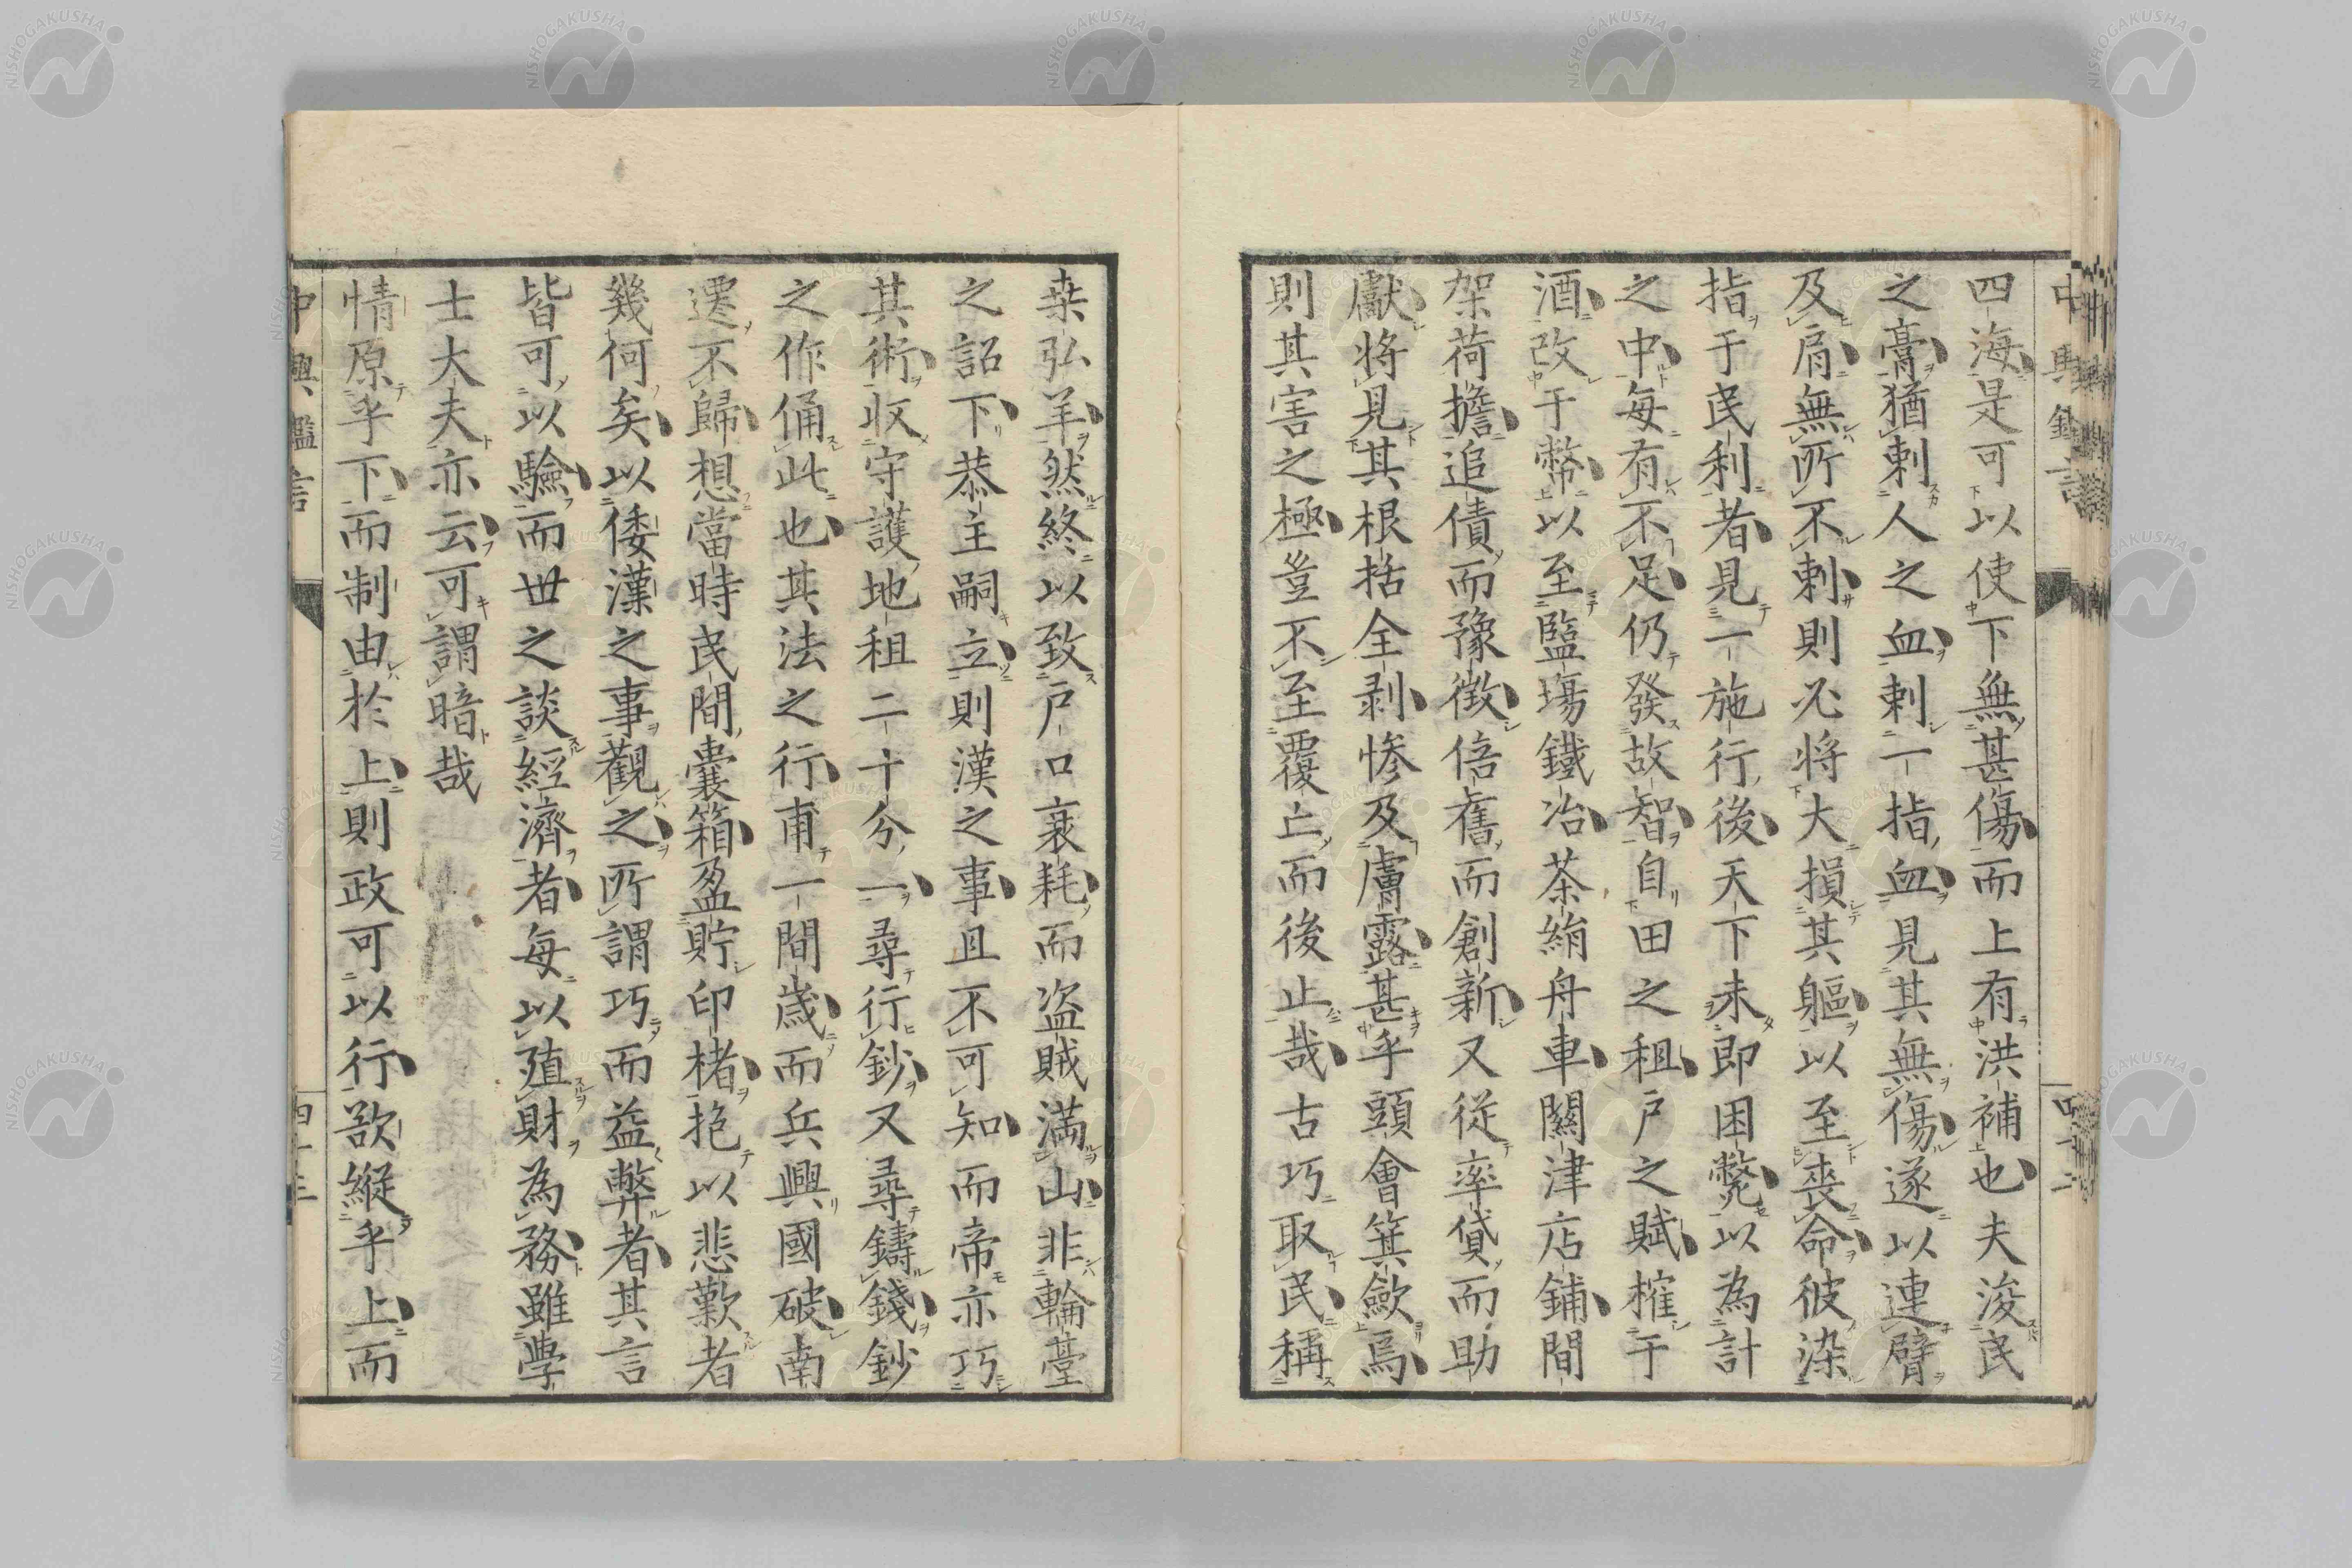 四海是可以使下無甚傷而上有洪補也夫浚民
之膏猶刺人之血刺一指血見其無傷遂以連臂
及肩無所不刺則必將大損其軀以至喪命彼染
指于民利者見一施行後天下未即困斃以為計
之中每有不足仍發故智自田之租戶之賦榷于
酒改于幣以至鹽場鐵冶茶絹舟車關津店鋪間
架荷擔追債而豫徴倍舊而創新又從率貸而助
獻將見其根括全剥慘及膚露甚乎頭會箕斂焉
則其害之極豈不至覆亡而後止哉古巧取民稱
桒弘羊然終以致戶口衰耗而盗賊満山非輪臺
之詔下恭主嗣立則漢之事且不可知而帝亦巧
其術收守護地租二十分一尋行鈔又尋鑄錢鈔
之作俑此也其法之行甫一間歳而兵興國破南
遷不歸想當時民間嚢箱盈貯印楮抱以悲歎者
幾何矣以倭漢之事觀之所謂巧而益弊者其言
皆可以驗而世之談經濟者每以殖財為務雖學
士大夫亦云可謂暗哉
情原乎下而制由於上則政可以行欲縦乎上而
中興鑑言
四十三